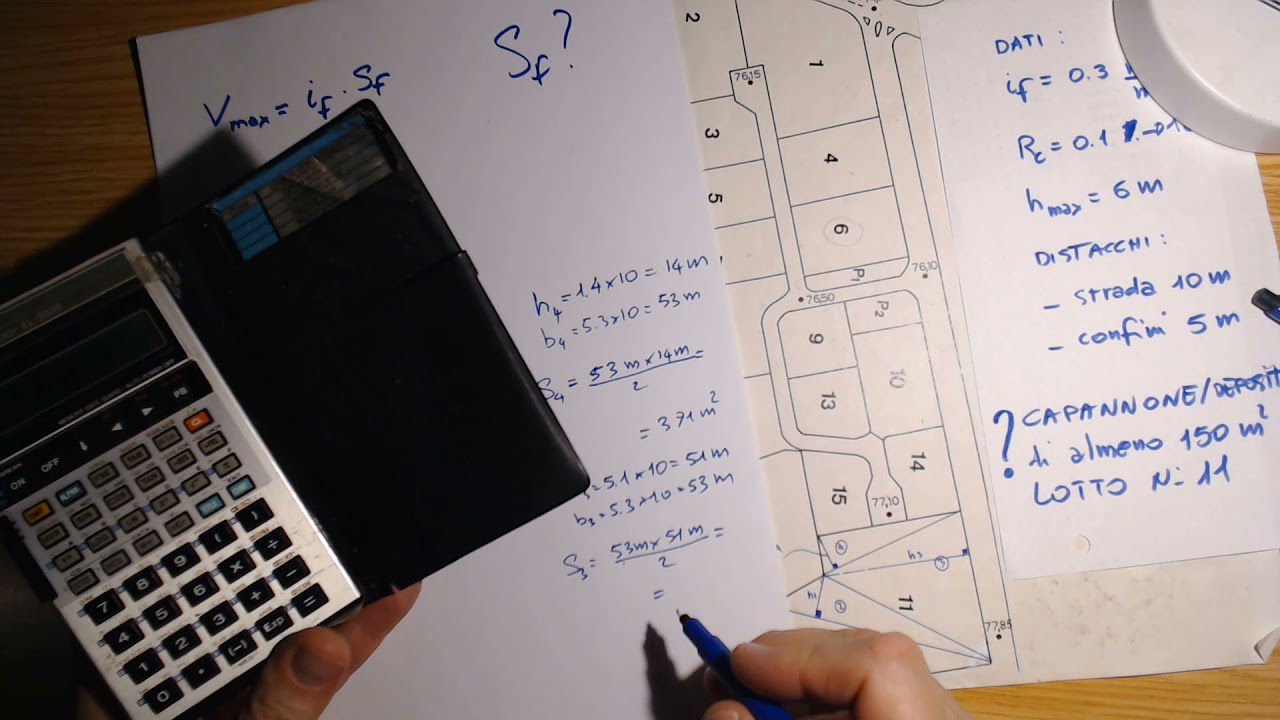 Sf?
Vmax = if · Sf
h4 = 1.4×10 = 14 m
b4 = 5.3×10 = 53 m
S4 = 53 m × 14 m =
2
= 371 m²
= 5.1×10 = 51 m
b3 = 5.3×10 = 53 m
S3 = 53m × 51 m =
2
=
2
76,15
1
3
4
5
6
P1
76,10
76,50
P2
9
10
13
14
15
77,10
4
h3
3
h1
2
11
77,85
DATI :
if = 0.3
Rc = 0.1
hmax = 6 m
DISTACCHI :
- strada 10 m
- confini 5 m
? CAPANNONE/DEPOSIT
di almeno 150 m²
LOTTO N- 11
ON
OFF
ALPHA
PB
CL
7
8
9
(
)
4
5
6
×
÷
1
2
3
+
−
0
•
(−)
Exp
=